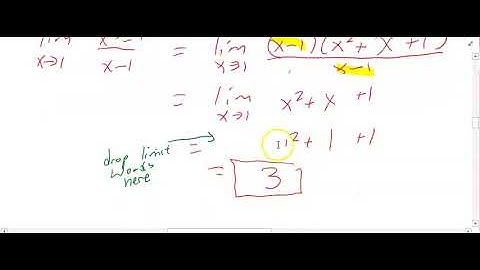 lim x→1 x-1 = lim x→1 (x-1)(x²+x+1) / x-1
= lim x→1 x²+x+1
drop limit words here → = 1²+1+1
= 3